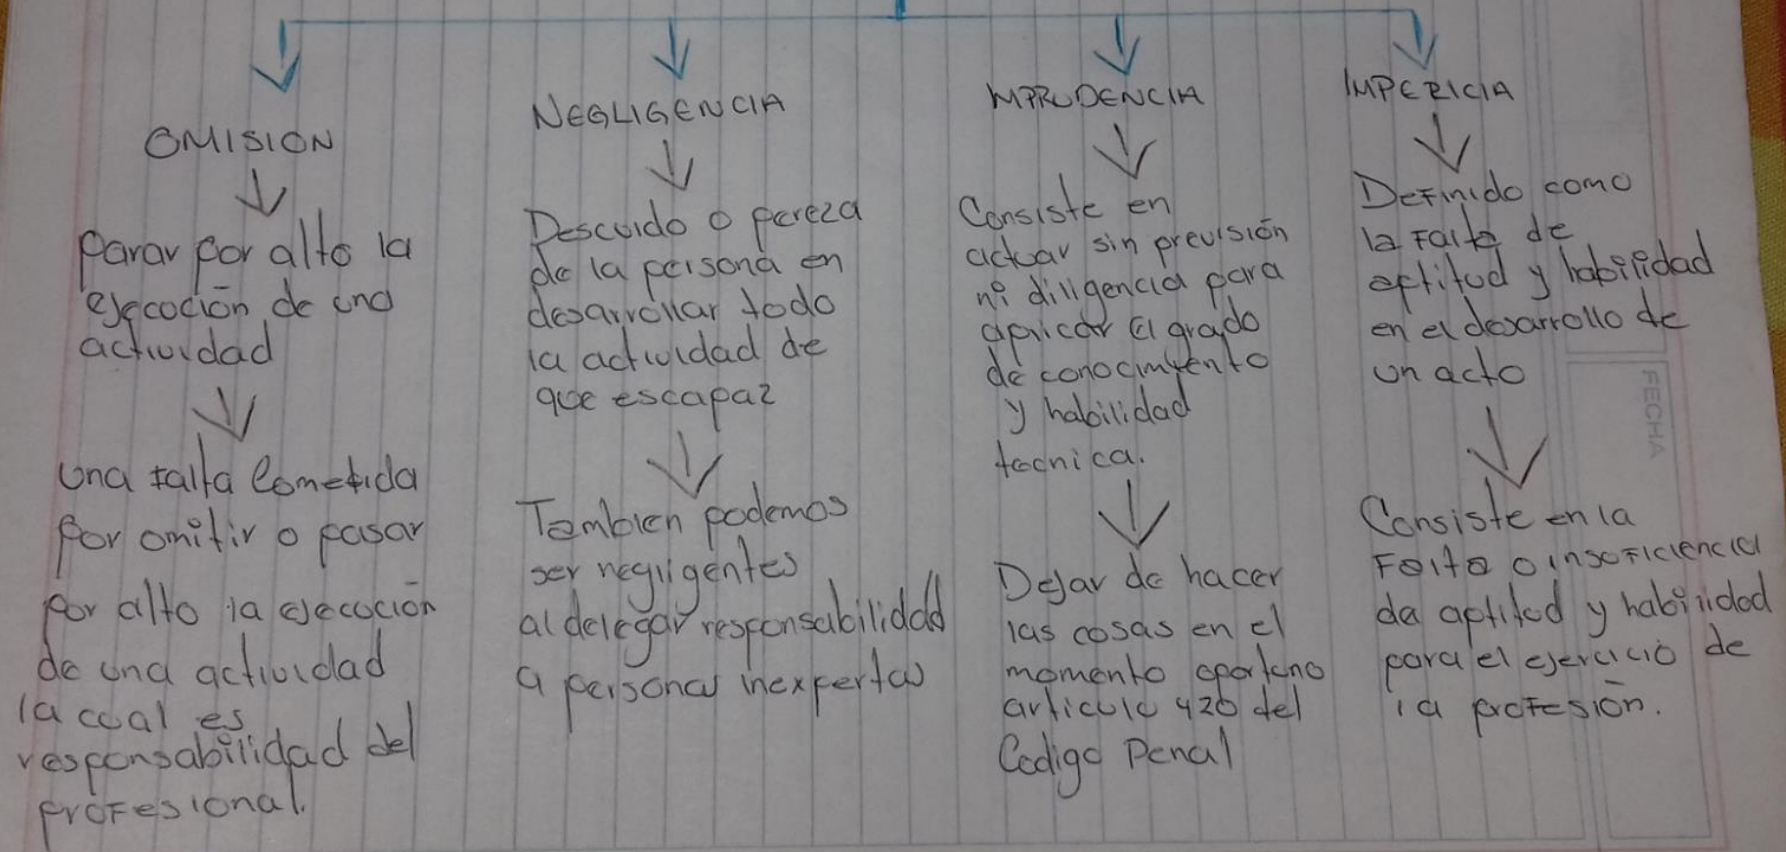 OMISION
Parar por alto la
ejecución de una
actividad
Una falta Cometida
Por omitir o pasar
Por alto la ejecución
de una actividad
la cual es
responsabilidad del
profesional.
NEGLIGENCIA
Descuido o pereza
de la persona en
desarrollar todo
la actividad de
que es capaz
Tambien podemos
ser negligentes
al delegar responsabilidad
a personas inexpertas
IMPRUDENCIA
Consiste en
actuar sin previsión
ni diligencia para
aplicar el grado
de conocimiento
y habilidad
tecnica.
Dejar de hacer
las cosas en el
momento oportuno
articulo 420 del
Codigo Penal
IMPERICIA
Definido como
la Falta de
aptitud y habilidad
en el desarrollo de
un acto
Consiste en la
Falta o insuficiencia
da aptitud y habilidad
para el ejercicio de
la profesión.
FECHA